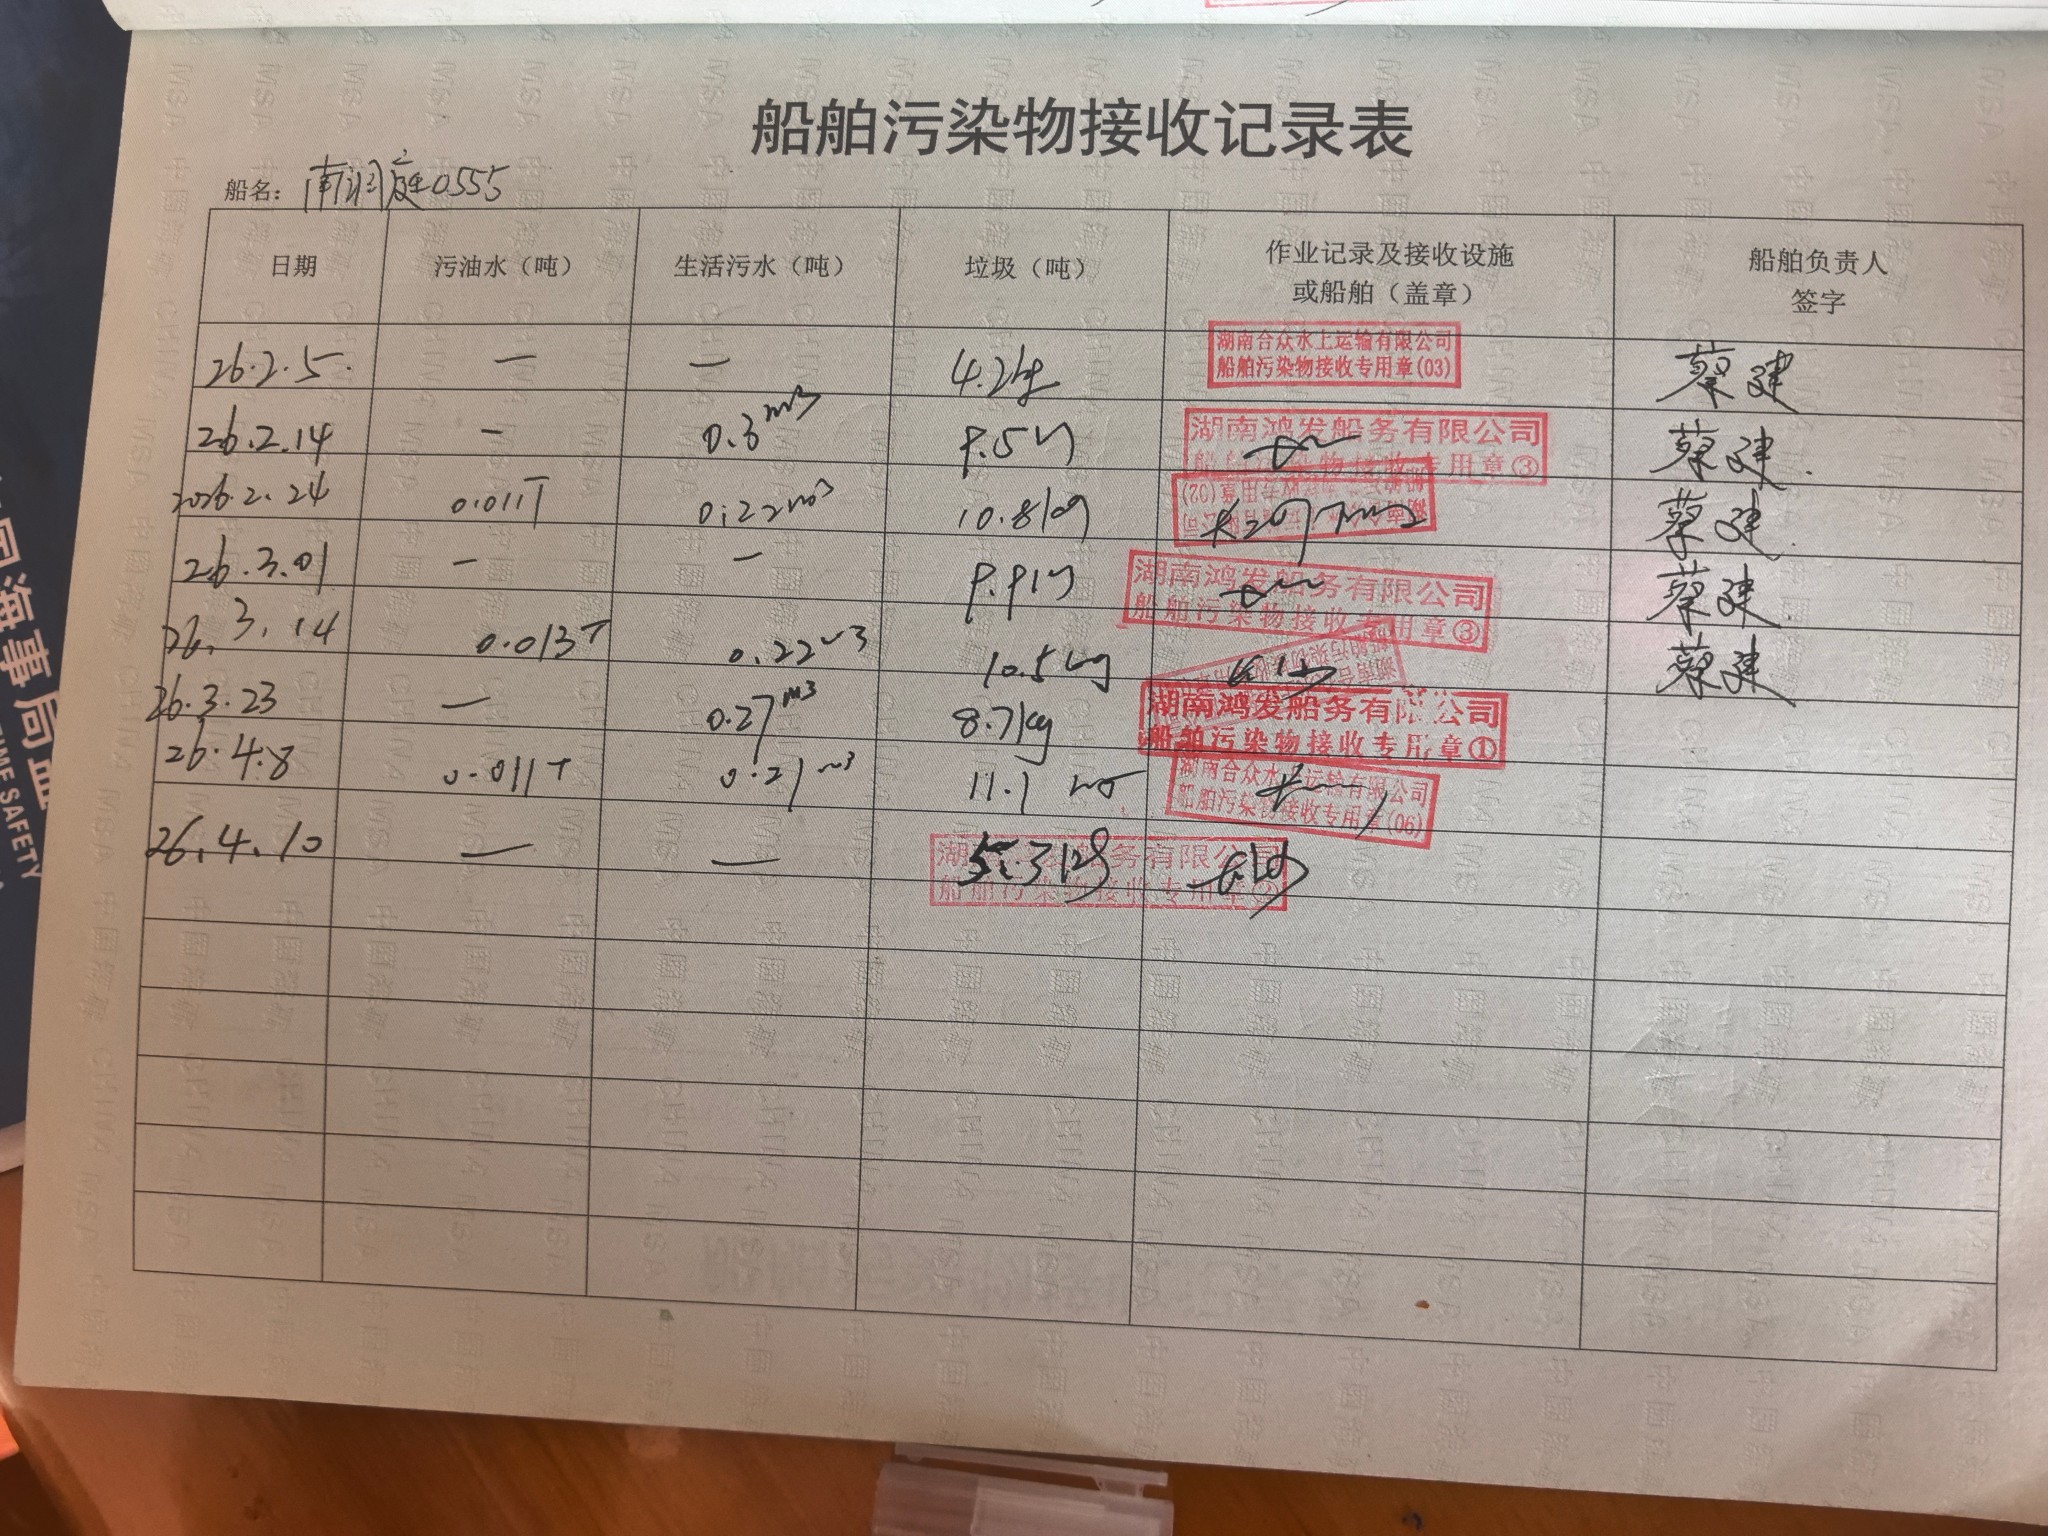 船舶污染物接收记录表
船名: 南洞庭0555
日期 污油水（吨） 生活污水（吨） 垃圾（吨） 作业记录及接收设施或船舶（盖章） 船舶负责人签字
26.2.5. — — 4.2kg 湖南合众水上运输有限公司 船舶污染物接收专用章(03) 蔡建
26.2.14 — 0.3m3 9.5kg 湖南鸿发船务有限公司 船舶污染物接收专用章③ 蔡建.
2026.2.24 0.011T 0.22m3 10.8kg 蔡建.
26.3.01 — — 9.9kg 湖南鸿发船务有限公司 船舶污染物接收专用章③ 蔡建.
26.3.14 0.013T 0.22m3 10.5kg 蔡建
26.3.23 — 0.27m3 8.7kg 湖南鸿发船务有限公司 船舶污染物接收专用章①
26.4.8 0.011T 0.21m3 11.1 kg 湖南合众水上运输有限公司 船舶污染物接收专用章(06)
26.4.10 — — 5.3kg
中國海事 CHINA MSA
国海事局
TIME SAFETY